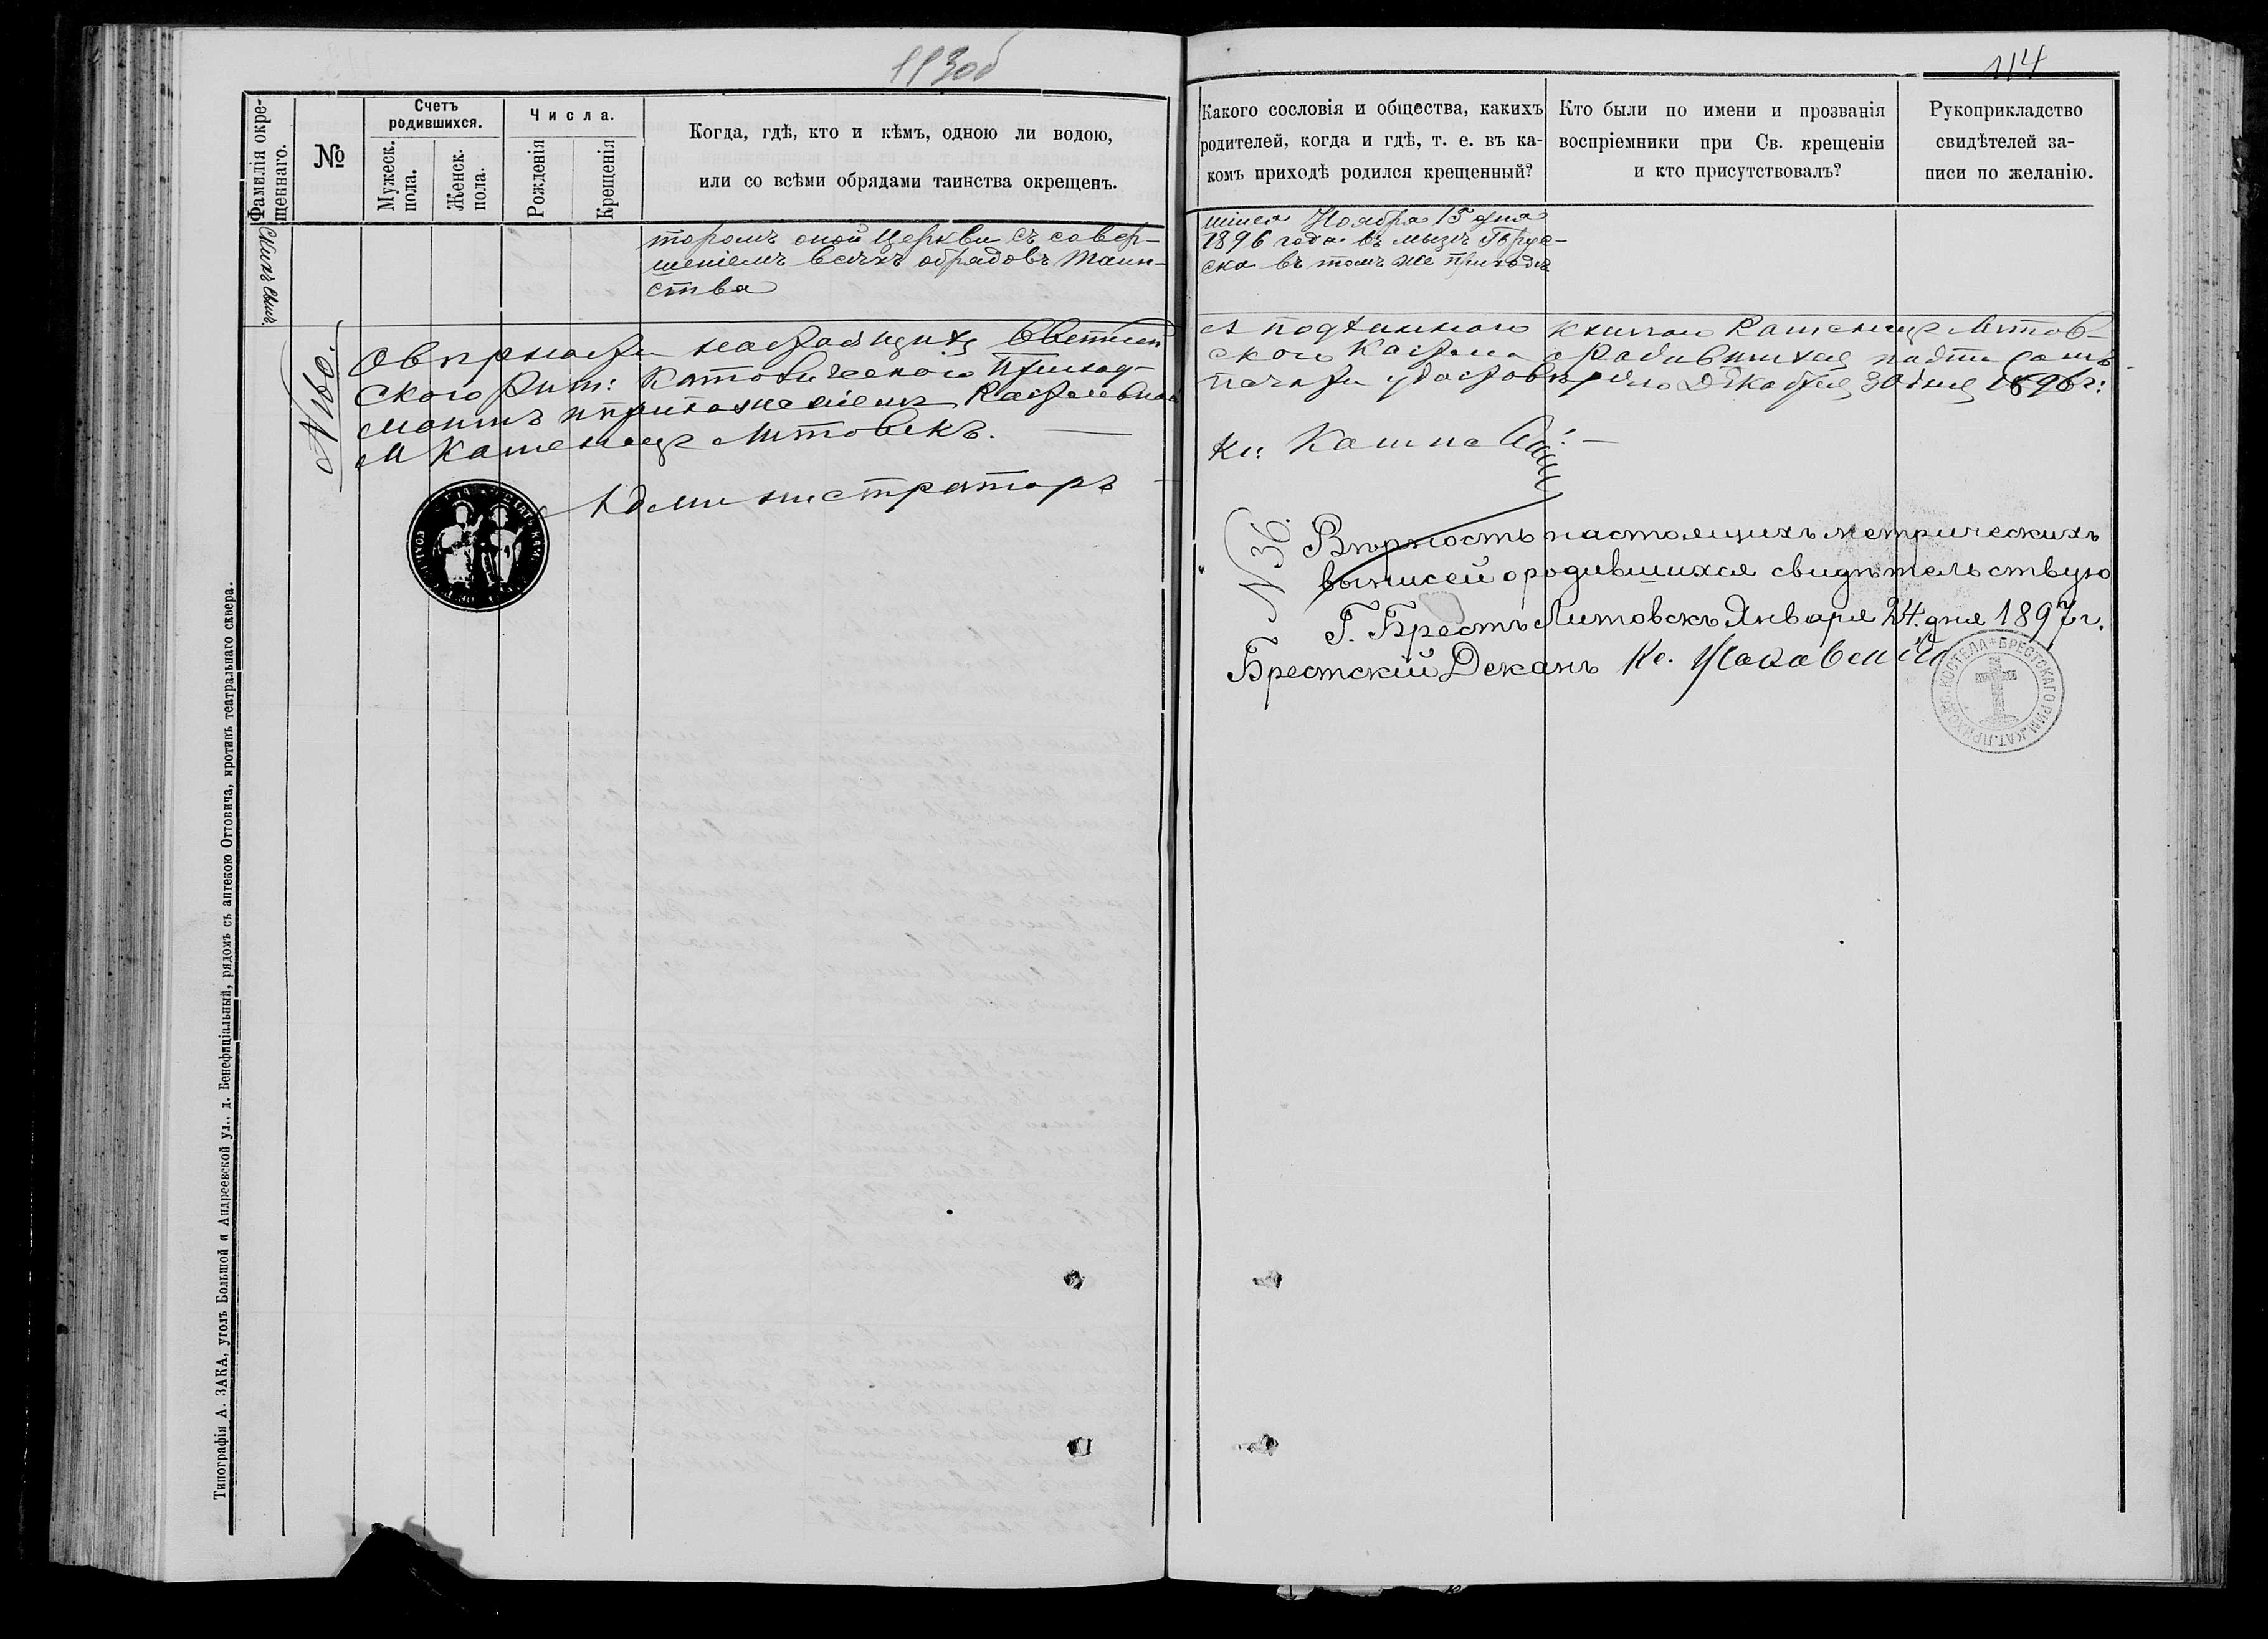 113об
Фамилія окре-
щеннаго.
№
Счетъ
родившихся.
Мужеск.
пола.
Женск.
пола.
Числа.
Рожденія
Крещенія
Когда, гдѣ, кто и кѣмъ, одною ли водою,
или со всѣми обрядами таинства окрещенъ.
торомъ оной Церкви съ совер-
шеніемъ всѣхъ обрядовъ Таин-
ства
N 160.
О вѣрности настоящихъ
ского Рим: Католическаго Приход-
приложеніемъ
М Каменецъ Литовскъ.
Администраторъ
Типографія А. ЗАКА, уголъ Большой и Андреевской ул., д. Бенефиціальный, рядомъ съ аптекою Оттовича, противъ театральнаго сквера.
114
Какого сословія и общества, какихъ
родителей, когда и гдѣ, т. е. въ ка-
комъ приходѣ родился крещенный?
Кто были по имени и прозванія
воспріемники при Св. крещеніи
и кто присутствовалъ?
Рукоприкладство
свидѣтелей за-
писи по желанію.
шійся Ноября 15 дня
1896 года въ мызѣ
въ томъ же приходѣ
съ подлинною книгою Каменецъ Литов-
ского Костела о Родившихся
печати удостовѣряю Декабря 30 дня 1896 г:
Кс:
N 36.
Вѣрность настоящихъ метрическихъ
выписей о родившихся свидѣтельствую
Г. Брестъ Литовскъ Января 24 дня 1897 г.
Брестскій Деканъ Кс.
КОСТЕЛА + БРЕСТСКАГО РИМ. КАТ. ПРИХОДСК.